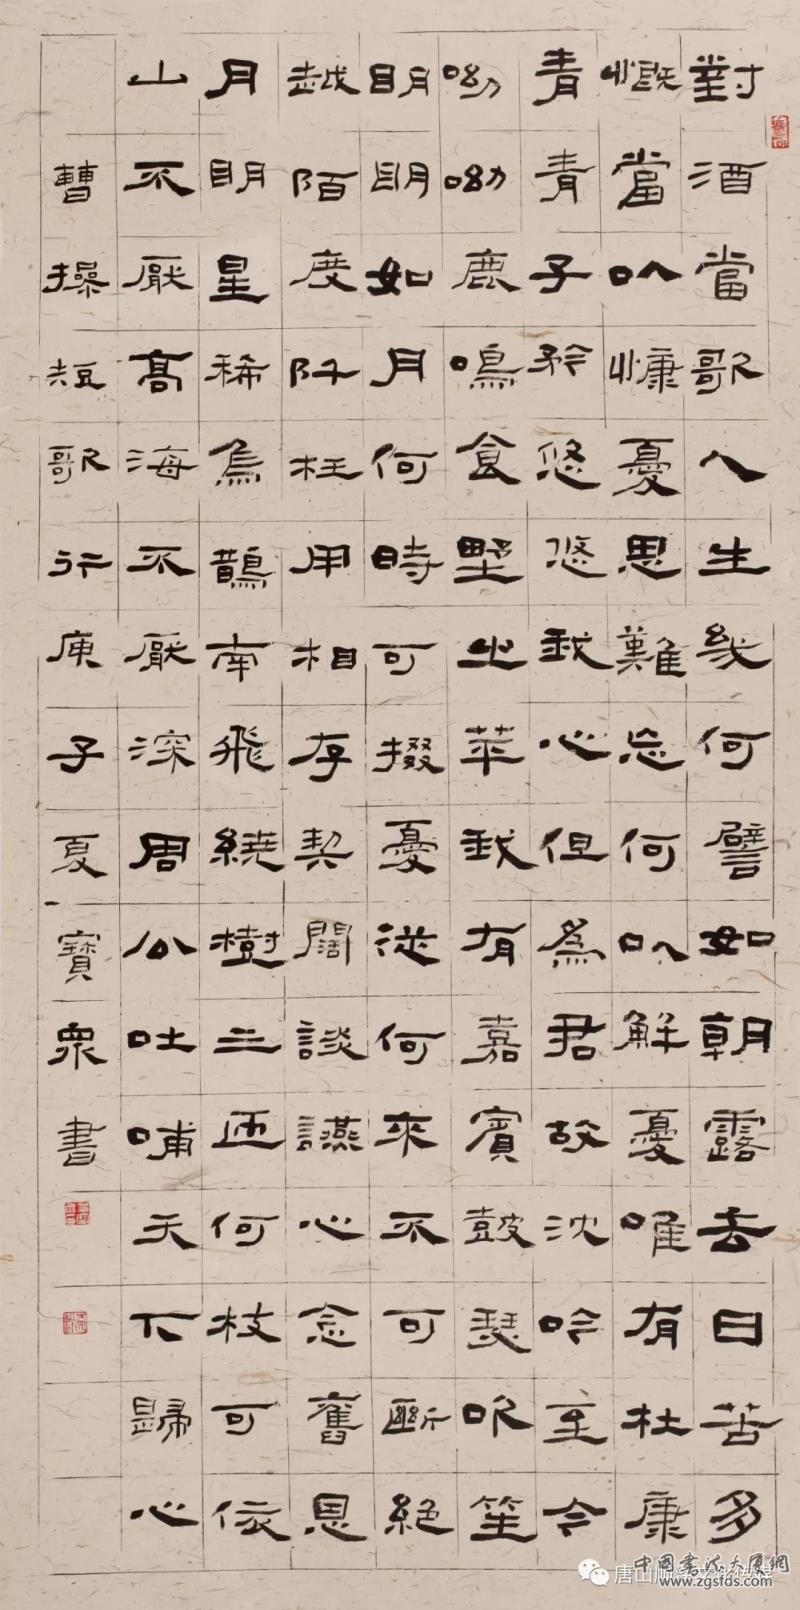 對酒當歌人生幾何譬如朝露去日苦多
慨當以慷憂思難忘何以解憂唯有杜康
青青子衿悠悠我心但為君故沈吟至今
呦呦鹿鳴食野之苹我有嘉賓鼓瑟吹笙
明明如月何時可掇憂從何來不可斷絕
越陌度阡枉用相存契闊談讌心念舊恩
月明星稀烏鵲南飛繞樹三匝何枝可依
山不厭高海不厭深周公吐哺天下歸心
曹操短歌行庚子夏寶眾書
中國書法大厦網
唐山
www.zgsfds.com